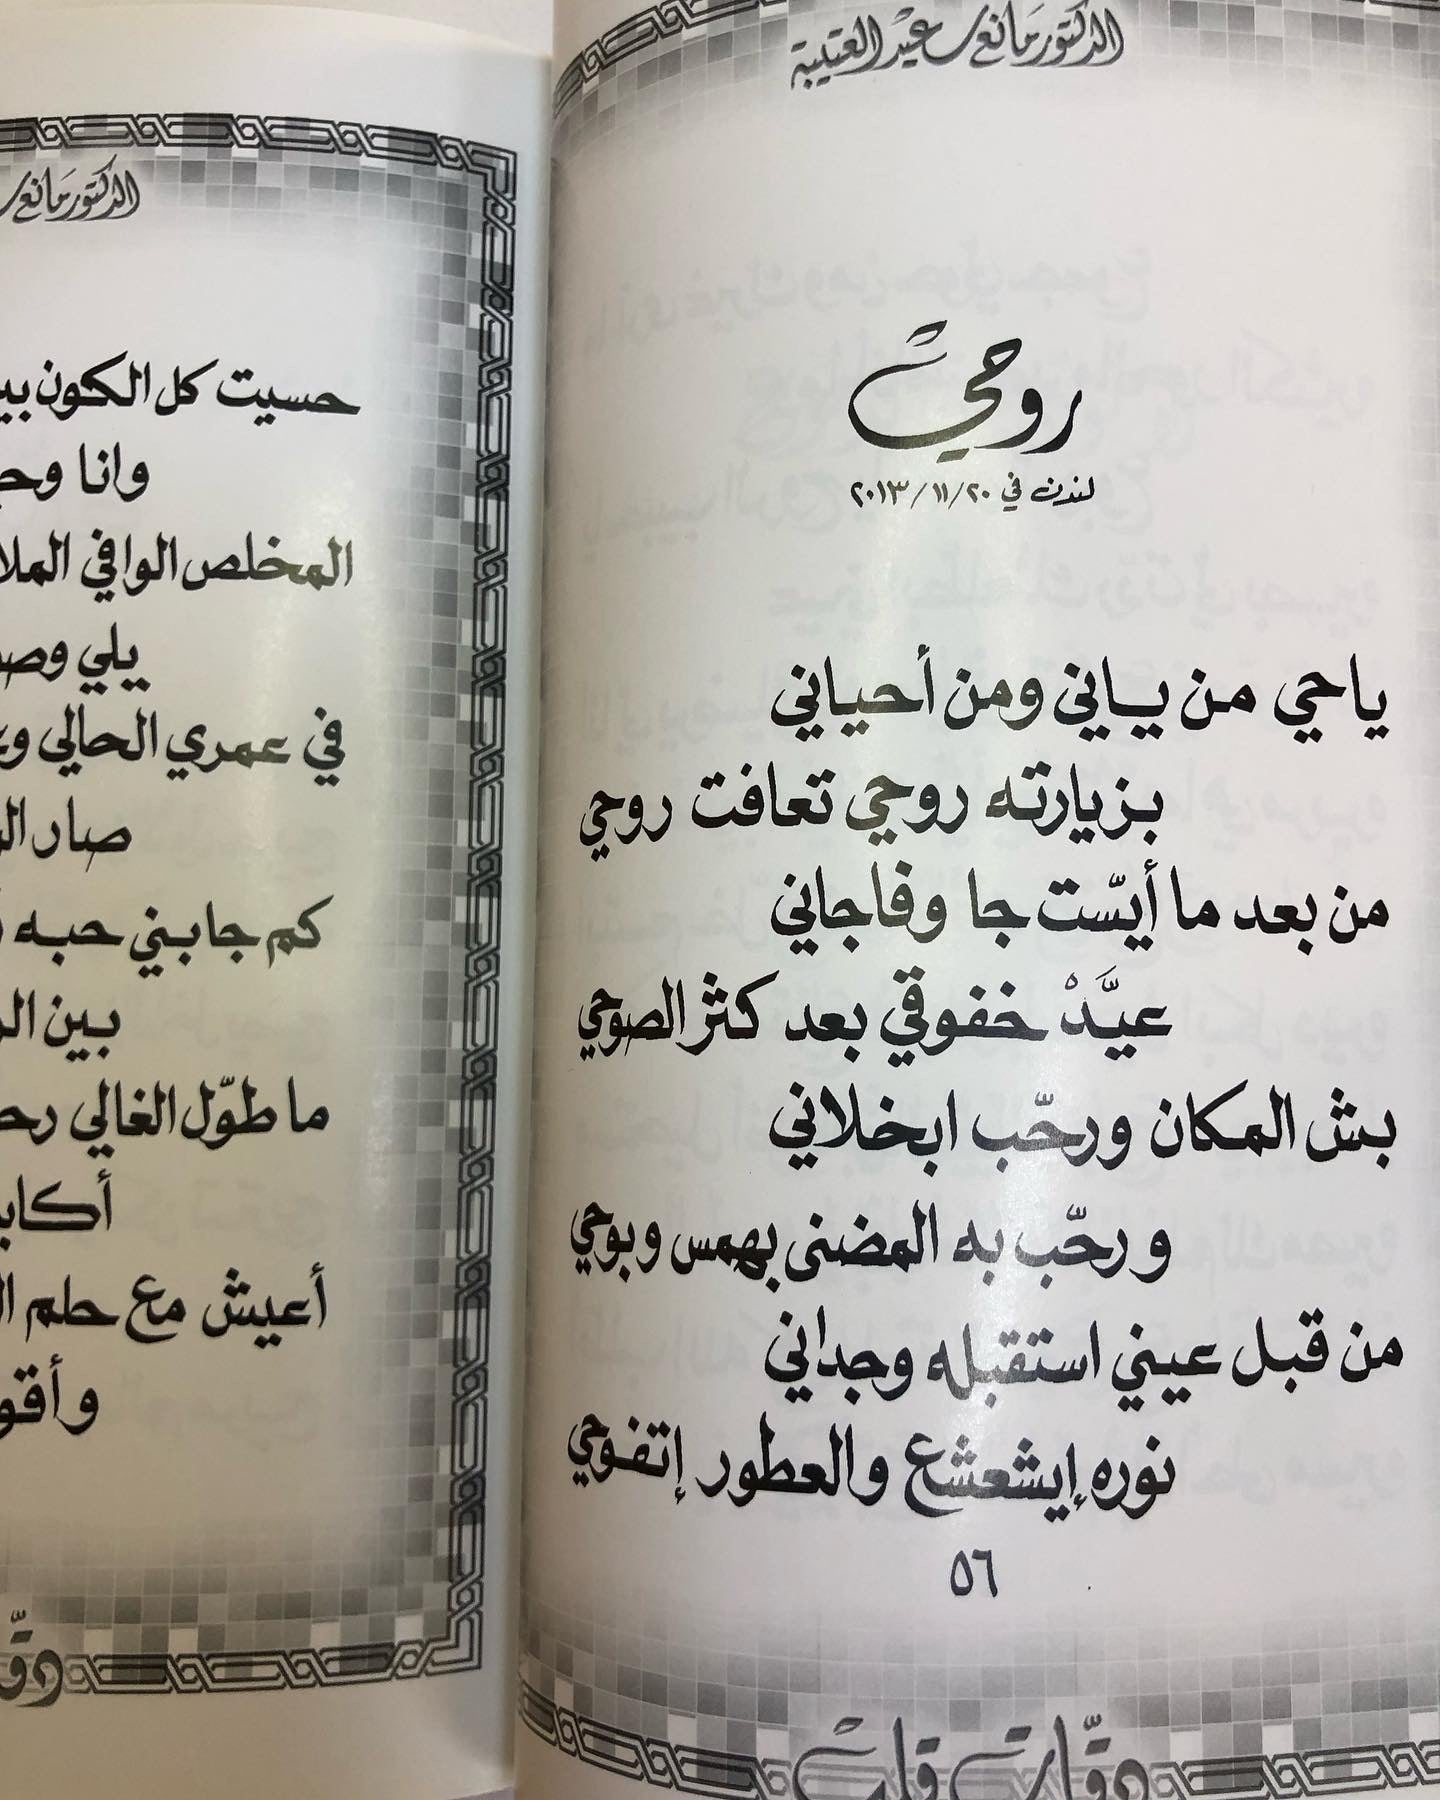 الدكتور مانع سعيد العتيبة
روحي
لندن في ٢٠/١١/٢٠١٣
ياحي من ياني ومن أحياني
بزيارته روحي تعافت روحي
من بعد ما أيّست جا وفاجاني
عيَّدْ خفوقي بعد كثر الصوحي
بش المكان ورحّب ابخلاني
ورحّب به المضنى بهمس وبوحي
من قبل عيني استقبله وجداني
نوره إيشعشع والعطور إتفوحي
٥٦
دقّات قلب
الدكتور مانع
حسيت كل الكون
وانا
المخلص الوافي
يلي
في عمري الحالي
صار
كم جابني حبه
بين
ما طوّل الغالي
أعيش مع حلم